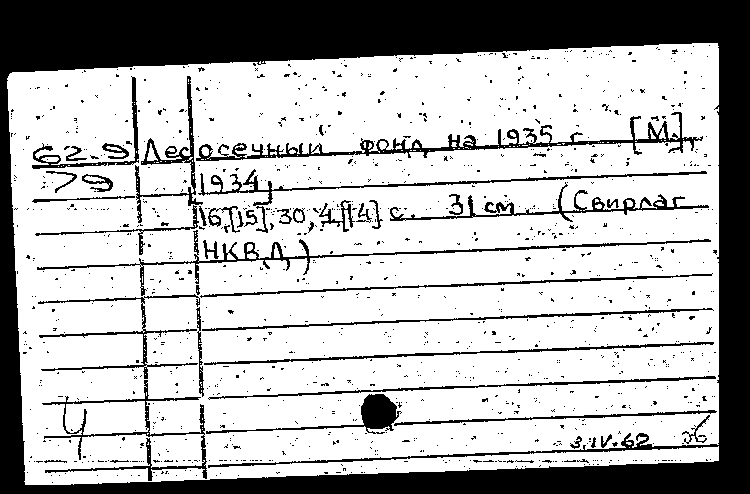 62-9 Лесосечный фонд на 1935 г. [М.],
79 [1934].
16,[15],30,4,[14] с. 31 см. (Свирлаг
НКВД)
Ч
3.IV.62 36